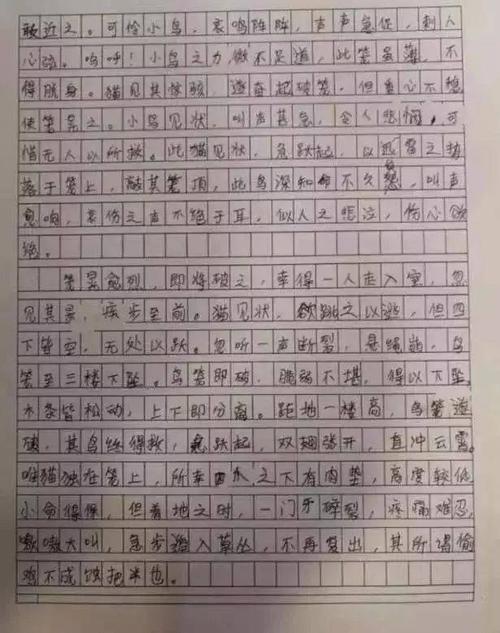 敢近之。可怜小鸟，哀鸣阵阵，声声急促，刺人
心弦。呜呼！小鸟之力微不足道，此笼虽薄，不
得脱身。猫见其惊骇，遂奋起破笼。但重心不稳
使笼晃之。小鸟见状，叫声甚急，令人悲悯，可
惜无人以所救。此猫见状，急跃起，以迅雷之势
落于笼上，敲其笼顶，此鸟深知命不久矣，叫声
忽响，哀伤之声不绝于耳，似人之悲泣，伤心欲
绝。
笼晃愈烈，即将破之，幸得一人走入室，忽
见其景，疾步至前。猫见状，欲跳之以逃，但四
下皆空，无处以跃。忽听一声断裂，悬绳断，鸟
笼至三楼下坠。鸟笼即破，脆弱不堪，得以下坠，
木条皆松动，上下即分离。距地一楼高，鸟笼遂
破，其鸟终得救，急跃起，双翅张开，直冲云霄。
唯猫独在笼上，所幸其爪之下有肉垫，高度较低
小命得保，但着地之时，一门牙碎裂，疼痛难忍
嗷嗷大叫，急步遁入草丛，不再复出，其所谓偷
鸡不成蚀把米也。